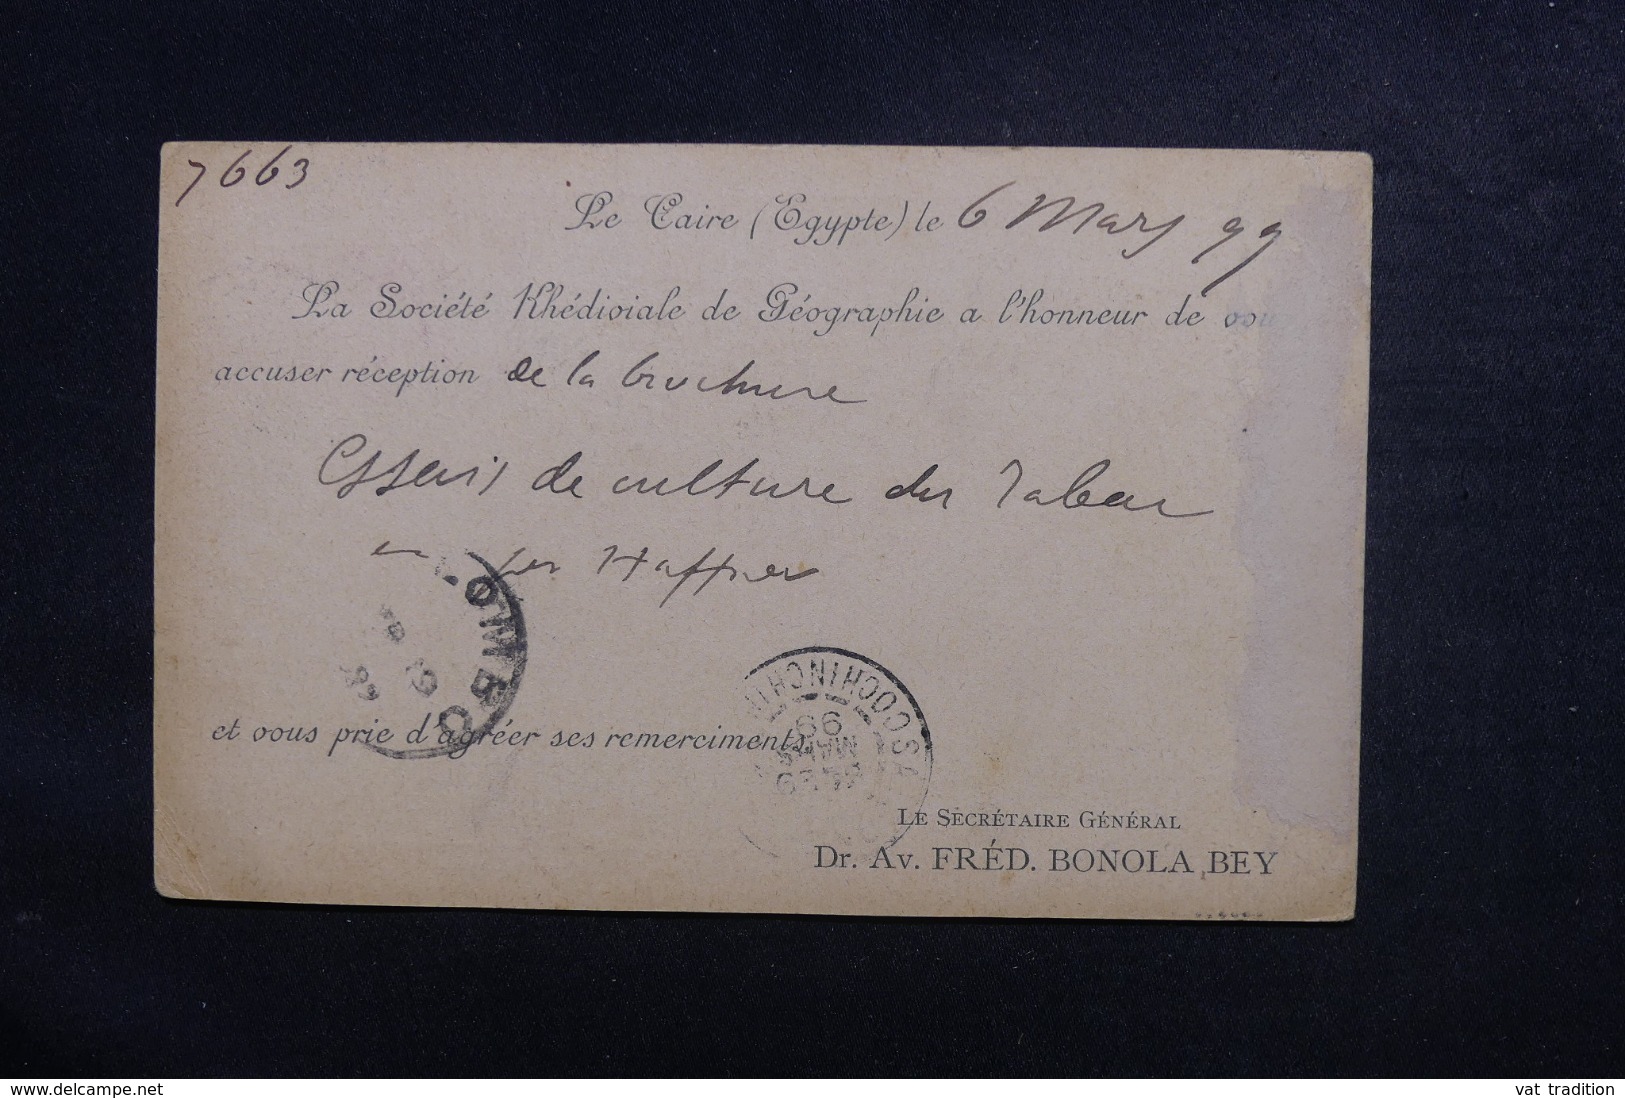 7663
Le Caire (Egypte) le 6 Mars 99
La Société Khédiviale de Géographie a l'honneur de vous
accuser réception de la brochure
Essais de culture du Tabac
par Haffner
et vous prie d'agréer ses remerciments.
COLOMBO
COCHINCHINE
99
MARS
Le Secrétaire Général
Dr. Av. FRÉD. BONOLA BEY
www.delcampe.net
vat tradition